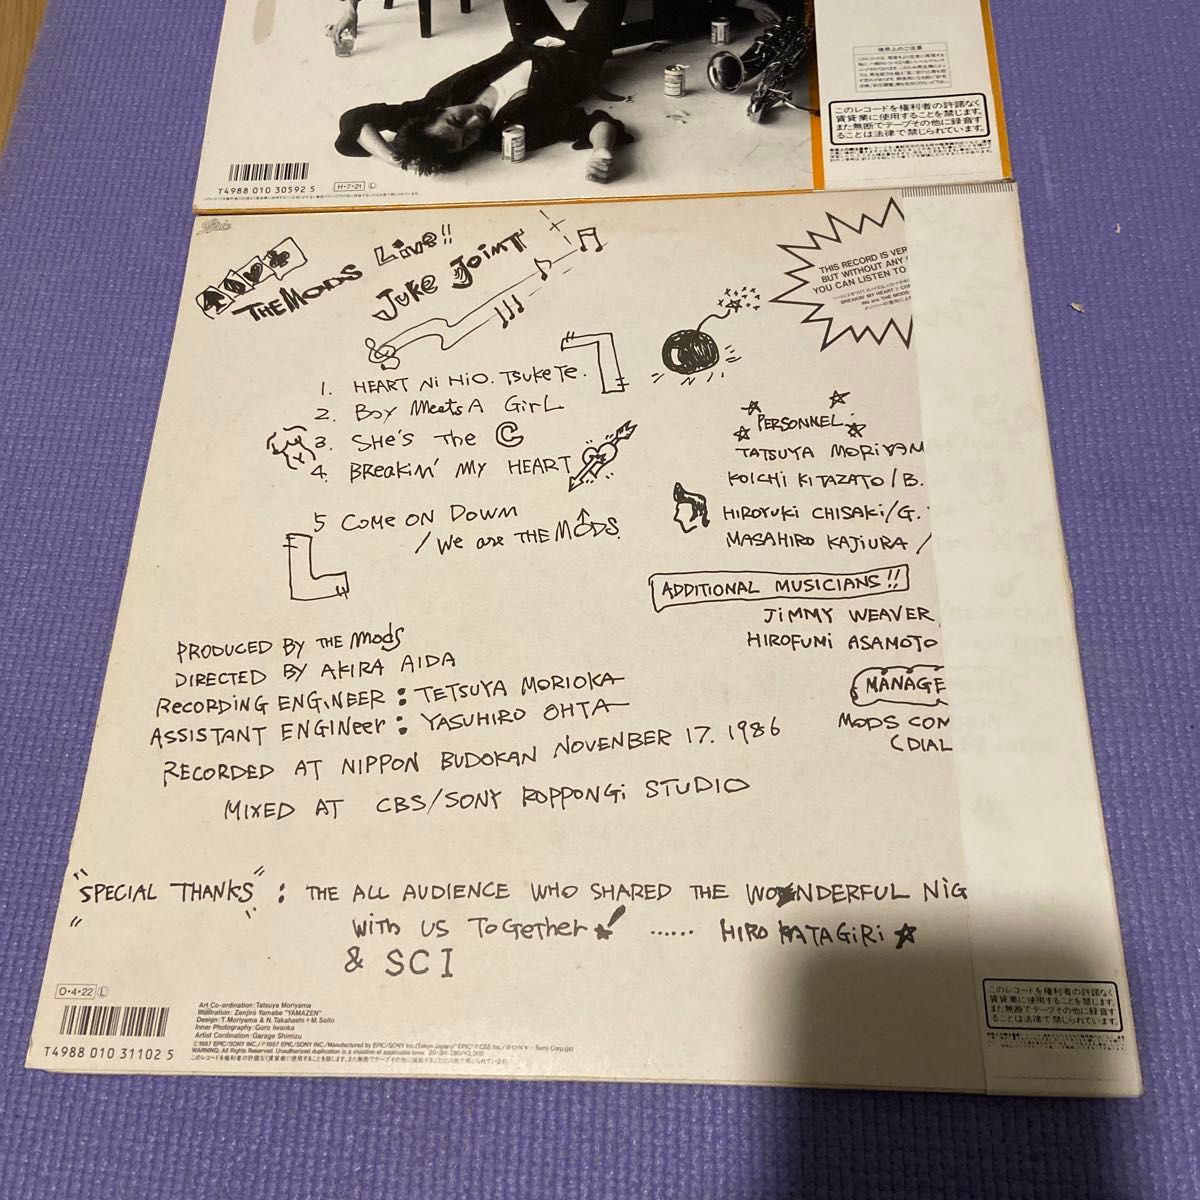 使用上のご注意
このレコードを権利者の許諾なく
賃貸業に使用することを禁じます。
また無断でテープその他に録音す
ることは法律で禁じられています。
T4988 010 30592 5
H・7・21 L
Epic
THE MODS Live!!
Juke Joint
THIS RECORD IS VER
BUT WITHOUT ANY
YOU CAN LISTEN TO
BREAKIN' MY HEART
We are THE MODS
1. HEART Ni HiO. TsukeTe.
2. Boy Meets A GirL
3. SHe's The C
4. BReakin' My HEART
5 COMe ON DOWN
/We are THE MODS.
PERSONNEL
TATSUYA MORiYAM
KOICHI KITAZATO / B.
HIROYUKI CHISAKI/G.
MASAHIRO KAJIURA /
ADDITIONAL MUSICIANS!!
JiMMY WEAVER
HIROFUMI ASAMOTO
MANAGE
MODS CON
CDIAL
PRODUCED BY THE MODS
DIRECTED BY AKIRA AIDA
RECORDING ENGiNEER : TETSUYA MORIOKA
ASSISTANT ENGINeer : YASUHIRO OHTA
RECORDED AT NIPPON BUDOKAN NOVENBER 17. 1986
MIXED AT CBS/SONY ROPPONGi STUDIO
"SPECIAL THANKS" : THE ALL AUDIENCE WHO SHARED THE WONDERFUL NiG
With US ToGether! ...... HIRO KATAGiRi
& SCI
O・4・22 L
T4988 010 31102 5
Art Co-ordination: Tatsuya Moriyama
Illustration: Zenjiro Yamabe "YAMAZEN"
Design: T. Moriyama & N. Takahashi + M. Saito
Inner Photography: Goro Iwaoka
Artist Cordination: Garage Shimizu
©1987 EPIC/SONY INC./℗1987 EPIC/SONY INC./Manufactured by EPIC/SONY Inc.(Tokyo Japan)
WARNING: All Rights Reserved. Unauthorized duplication is a violation of applicable laws. 20・3H-280/¥2,000
このレコードを権利者の許諾なく
賃貸業に使用することを禁じます。
また無断でテープその他に録音す
ることは法律で禁じられています。